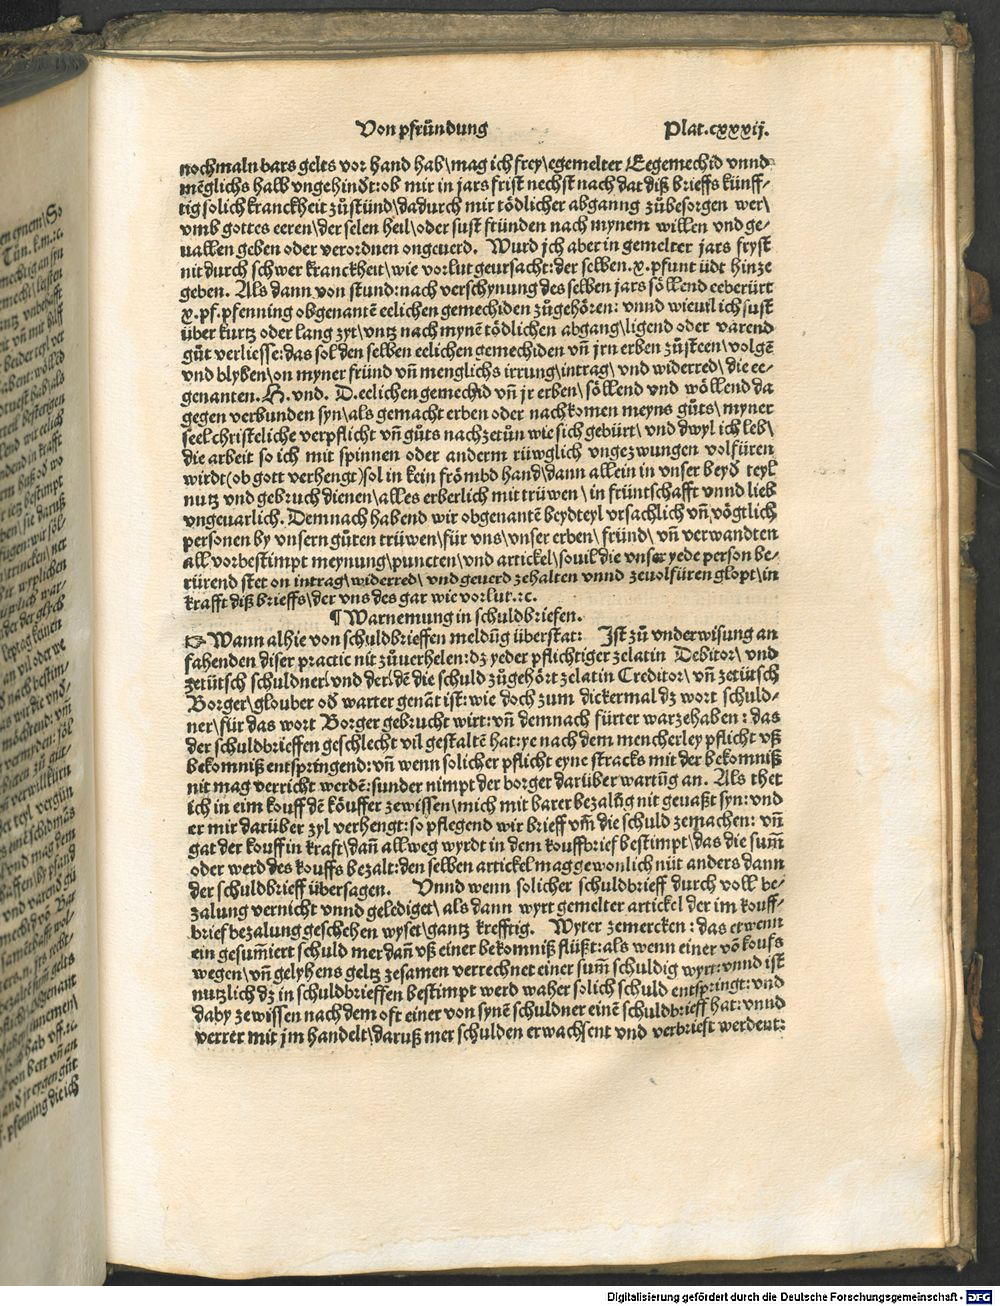 Von pfründung Plat.cxxxij.
nochmaln bars gelts vor hand hab\mag ich frey\egemelter Eegemechid vnnd
mēglichs halb vngehindt:ob mir in jars frist nechst nach dat diß brieffs künff-
tig solich kranckheit zůstünd\dadurch mir tödlicher abganng zůbesorgen wer\
vmb gottes eeren\der selen heil\oder sust fründen nach mynem willen vnd ge-
uallen geben oder verordnen ongeuerd. Wurd jch aber in gemelter jars fryst
nit durch schwer kranckheit\wie vorlut geursacht:der selben.x.pfunt üdt hinze
geben. Als dann von stund:nach verschynung des selben jars söllend eeberürt
x.pf.pfenning obgenantē eelichen gemechiden zůgehören: vnnd wieuil ich sust
über kurtz oder lang zyt\vntz nach mynē tödlichen abgang\ligend oder varend
gůt verliesse:das sol den selben eelichen gemechiden vn̄ jrn erben zůsteen\volgē
vnd blyben\on myner fründ vn̄ menglichs irrung\intrag\ vnd widerred\ die ee-
genanten.H.vnd. D.eelichen gemechid vn̄ jr erben\ söllend vnd wöllend da
gegen verbunden syn\als gemacht erben oder nachkomen meyns gůts\myner
seel christeliche verpflicht vn̄ gůts nachzetůn wie sich gebürt\ vnd dwyl ich leb\
die arbeit so ich mit spinnen oder anderm rüwglich vngezwungen volfüren
wirdt(ob gott verhengt)sol in kein frömbd hand\dann allein in vnser beyd teyl
nutz vnd gebruch dienen\alles erberlich mit trüwen\ in früntschafft vnnd lieb
vngeuarlich. Demnach habend wir obgenantē beydteyl vrsachlich vn̄ vögtlich
personen by vnsern gůten trüwen\für vns\vnser erben\fründ\ vn̄ verwandten
all vorbestimpt meynung\puncten\vnd artickel\souil die vnser yede person be-
rürend stet on intrag\widerred\ vnd geuerd zehalten vnnd zeuolfüren glopt\in
krafft diß brieffs\der vns des gar wie vorlut.ꝛc.
¶ Warnemung in schuldbriefen.
☞ Wann alhie von schuldbrieffen meldūg überstat: Ist zů vnderwisung an
fahenden diser practic nit zůuerhelen:dz yeder pflichtiger zelatin Debitor\ vnd
zetütsch schuldner\vnd der\dē die schuld zůgehört zelatin Creditor\ vn̄ zetütsch
Borger\glouber od warter genāt ist:wie doch zum dickermal dz wort schuld-
ner\für das wort Borger gebrucht wirt:vn̄ demnach fürter warzehaben: das
der schuldbrieffen geschlecht vil gestaltē hat:ye nach dem mencherley pflicht vß
bekomniß entspringend:vn̄ wenn solicher pflicht eyne stracks mit der bekomniß
nit mag verricht werdē:sunder nimpt der borger darüber wartūg an. Als thet
ich in eim kouff dē köuffer zewissen\mich mit barer bezalūg nit geuaßt syn:vnd
er mir darüber zyl verhengt:so pflegend wir brieff vm̄ die schuld zemachen: vn̄
gat der kouff in kraft\dan̄ allweg wyrdt in dem kouffbrief bestimpt\das die sum̄
oder werd des kouffs bezalt:den selben artickel mag gewonlich nüt anders dann
der schuldbrieff übersagen. Vnnd wenn solicher schuldbrieff durch voll be-
zalung vernicht vnnd gelediget\ als dann wyrt gemelter artickel der im kouff-
brief bezalung geschehen wyset\gantz krefftig. Wyter zemercken: das etwenn
ein gesum̄iert schuld mer dan̄ vß einer bekomniß flüßt:als wenn einer vō koufs
wegen\vn̄ gelyhens geltz zesamen verrechnet einer sum̄ schuldig wyrt:vnnd ist
nutzlich dz in schuldbrieffen bestimpt werd waher solich schuld entspringt:vnd
daby zewissen nach dem oft einer von synē schuldner einē schuldbrieff hat:vnnd
verrer mit jm handelt\daruß mer schulden erwachsent vnd verbrieft werdent:
Digitalisierung gefördert durch die Deutsche Forschungsgemeinschaft - DFG